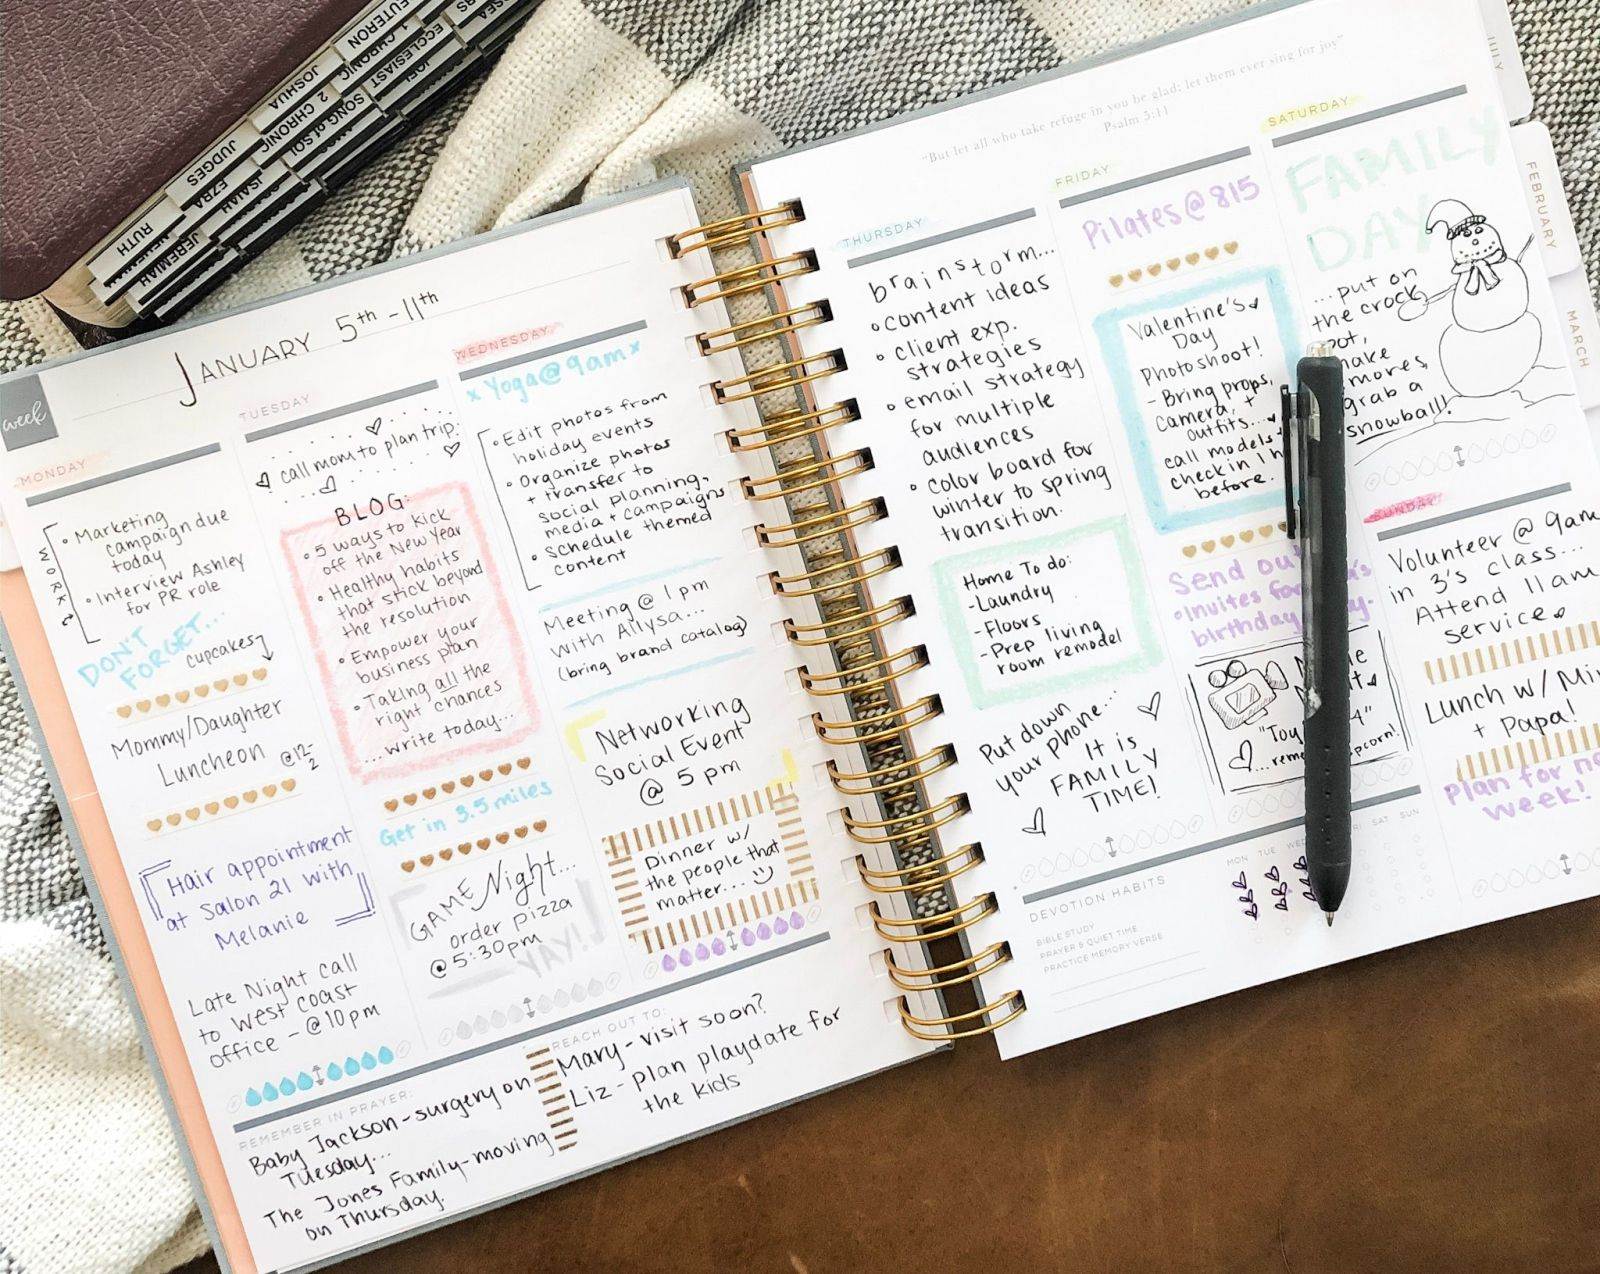 HOSEA
JOEL
ECCLESIAST
SONG of SOL
ISAIAH
JEREMIAH
1 CHRONIC
2 CHRONIC
EZRA
JOSHUA
JUDGES
RUTH
week
JANUARY 5th - 11th
MONDAY
WORK
• Marketing
campaign due
today
• Interview Ashley
for PR role
DON'T
FORGET...
cupcakes
Mommy/Daughter
Luncheon @12-
2
Hair appointment
at Salon 21 with
Melanie
Late Night call
to west coast
office - @10pm
TUESDAY
call mom to plan trip.
BLOG:
• 5 ways to kick
off the New Year
• Healthy habits
that stick beyond
the resolution
• Empower your
business plan
• Taking all the
right chances
....write today...
Get in 3.5 miles
GAME Night...
order pizza
@5:30pm
YAY!
WEDNESDAY
x Yoga@9am x
• Edit photos from
holiday events
• Organize photos
+ transfer to
social planning,
media + campaigns
• Schedule themed
content
Meeting @ 1 pm
with Allysa...
(bring brand catalog)
Networking
Social Event
@ 5 pm
Dinner w/
the people that
matter...
REMEMBER IN PRAYER:
Baby Jackson - surgery on
Tuesday...
The Jones Family - moving
on Thursday.
REACH OUT TO:
Mary - visit soon?
Liz - plan playdate for
the kids
"But let all who take refuge in you be glad; let them ever sing for joy"
Psalm 5:11
THURSDAY
brainstorm...
• content ideas
• client exp.
strategies
• email strategy
for multiple
audiences
• color board for
winter to spring
transition.
Home To do:
- Laundry
- Floors
- Prep living
room remodel
Put down
your phone...
It is
FAMILY
TIME!
FRIDAY
Pilates@815
Valentine's
Day
Photoshoot!
- Bring props,
camera, +
outfits...
call models +
check in 1 h
before.
Send out
• Invites
birthday
"Toy 4"
SATURDAY
FAMILY
DAY
...put on
the crock
grab a
snowball!
SUNDAY
Volunteer @ 9am
in 3's class...
Attend 11am
service
Lunch w/
+ Papa!
Plan for
week!
DEVOTION HABITS
MON TUE SAT SUN
BIBLE STUDY
PRAYER & QUIET TIME
PRACTICE MEMORY VERSE
JULY
FEBRUARY
MARCH